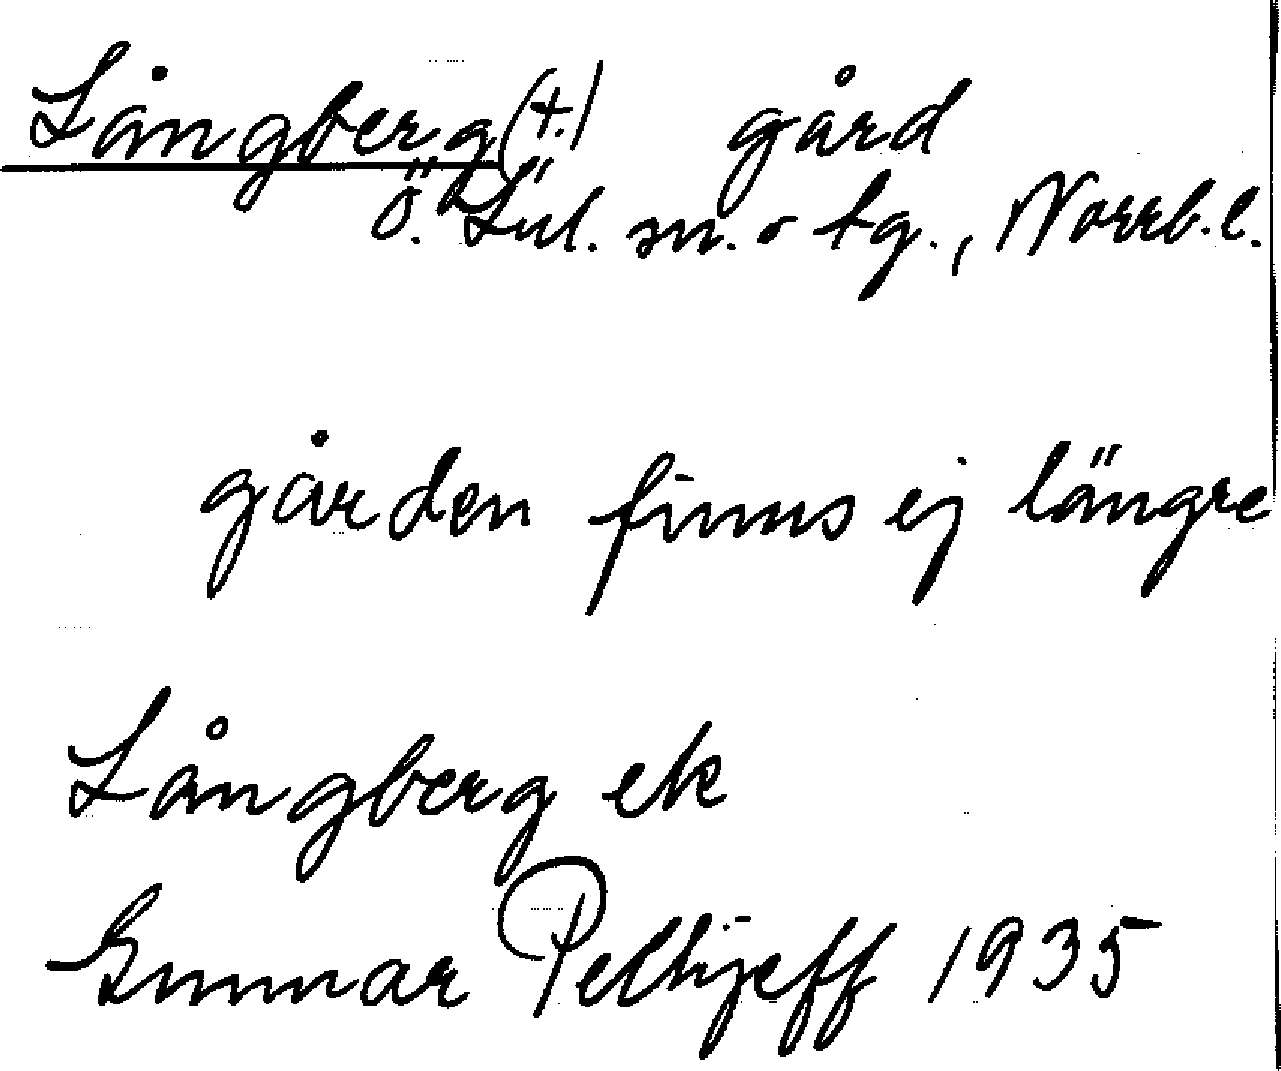 Långberg (†.) gård
Ö. Lul. sn. o tg., Norrb. l.
gården finns ej längre
Långberg ek
Gunnar Pellijeff 1935